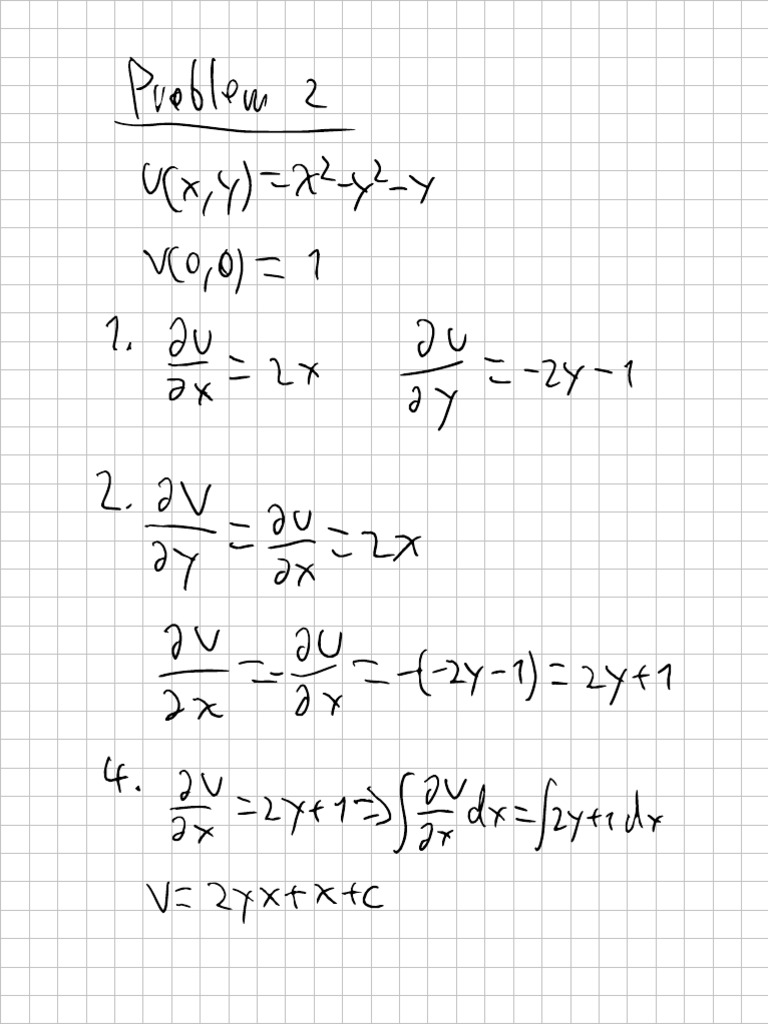 Problem 2
U(x,y)=x²-y²-y
V(0,0)=1
1. ∂U/∂x=2x ∂U/∂y=-2y-1
2. ∂V/∂y=∂U/∂x=2x
∂V/∂x=-∂U/∂x=-(-2y-1)=2y+1
4. ∂V/∂x=2y+1⇒∫∂V/∂x dx=∫2y+1dx
V=2yx+x+c